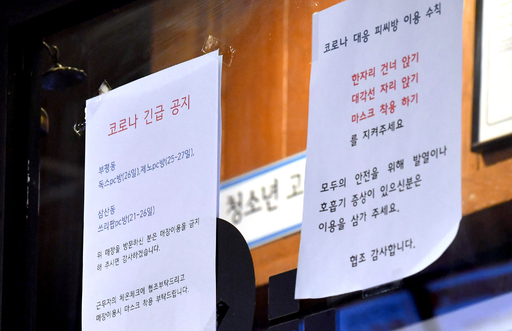 코로나 긴급 공지
부평동
독스pc방(26일),제노pc방(25-27일),
삼산동
쓰리팝pc방(21-26일)
위 매장을 방문하신 분은 매장이용을 금지
해 주시면 감사하겠습니다.
근무자의 체온체크에 협조부탁드리고
매장이용시 마스크 착용 부탁드립니다.
청소년 고
코로나 대응 피씨방 이용 수칙
한자리 건너 앉기
대각선 자리 앉기
마스크 착용 하기
를 지켜주세요
모두의 안전을 위해 발열이나
호흡기 증상이 있으신분은
이용을 삼가 주세요.
협조 감사합니다.